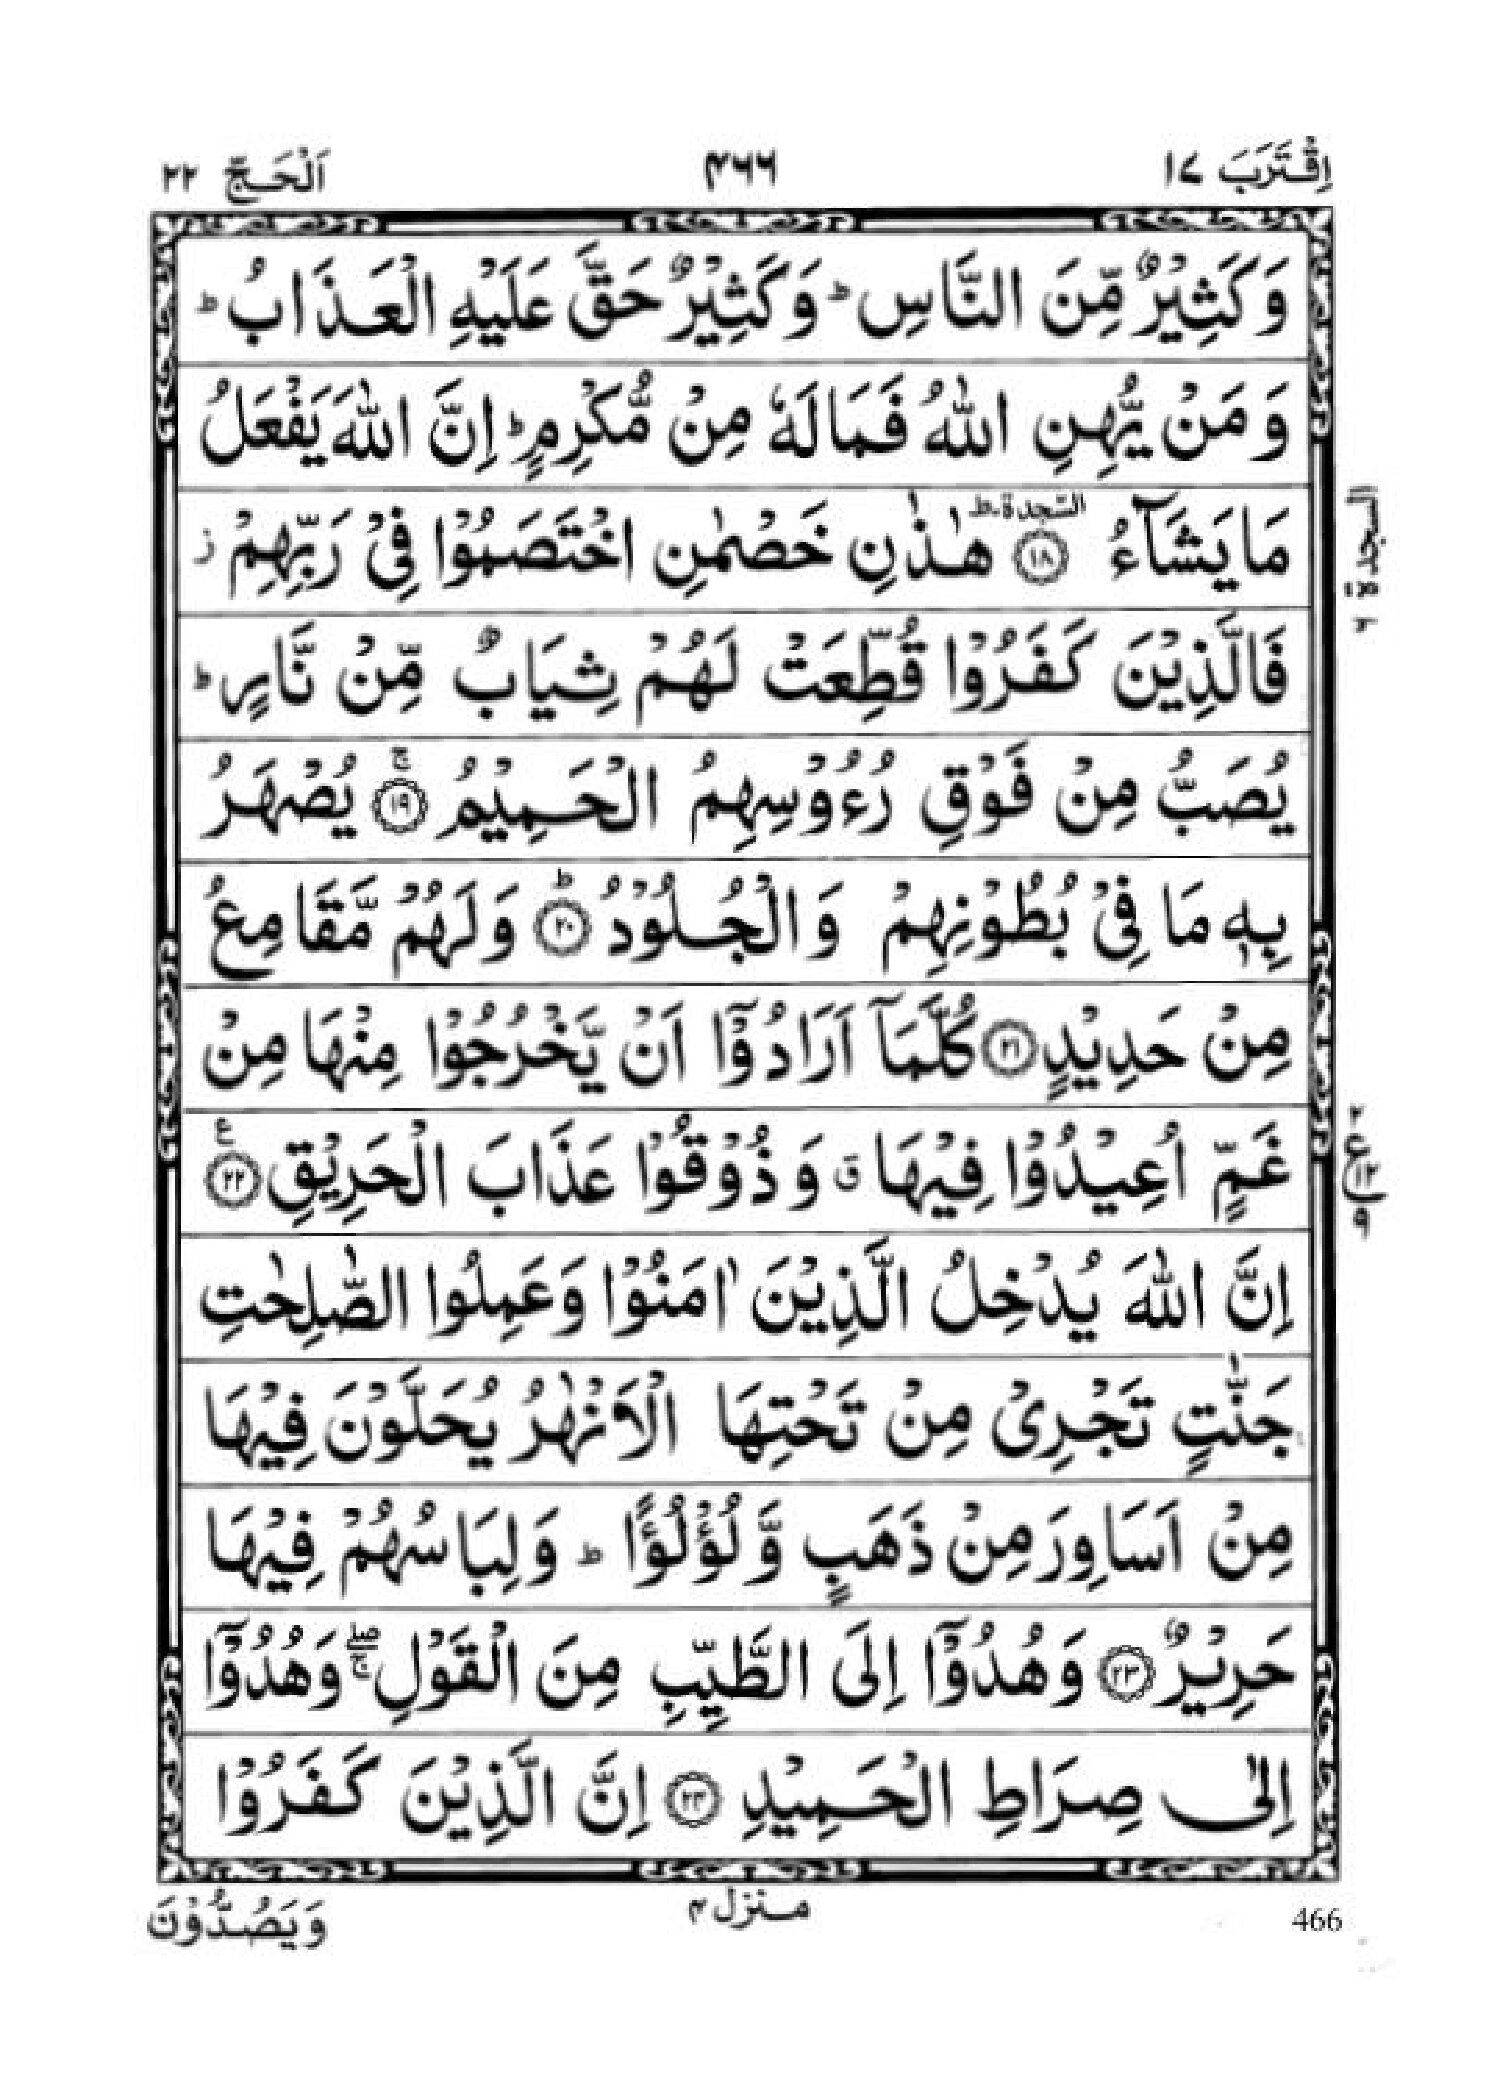 اِقْتَرَبَ ١٧ ٤٦٦ اَلْحَجّ ٢٢
وَكَثِيْرٌ مِّنَ النَّاسِ ؕ وَكَثِيْرٌ حَقَّ عَلَيْهِ الْعَذَابُ ؕ
وَمَنْ يُّهِنِ اللّٰهُ فَمَا لَهٗ مِنْ مُّكْرِمٍ ؕ اِنَّ اللّٰهَ يَفْعَلُ
مَا يَشَآءُ ۩ ﴿١٨﴾ السّجدة ؕ هٰذٰنِ خَصْمٰنِ اخْتَصَمُوْا فِيْ رَبِّهِمْ ز
السجدة
فَالَّذِيْنَ كَفَرُوْا قُطِّعَتْ لَهُمْ ثِيَابٌ مِّنْ نَّارٍ ؕ
يُصَبُّ مِنْ فَوْقِ رُءُوْسِهِمُ الْحَمِيْمُ ﴿١٩﴾ ۚ يُصْهَرُ
بِهٖ مَا فِيْ بُطُوْنِهِمْ وَالْجُلُوْدُ ﴿٢٠﴾ ؕ وَلَهُمْ مَّقَامِعُ
مِنْ حَدِيْدٍ ﴿٢١﴾ كُلَّمَآ اَرَادُوْٓا اَنْ يَّخْرُجُوْا مِنْهَا مِنْ
غَمٍّ اُعِيْدُوْا فِيْهَا ق وَذُوْقُوْا عَذَابَ الْحَرِيْقِ ﴿٢٢﴾ ع
٢ ع ١٢ ٩
اِنَّ اللّٰهَ يُدْخِلُ الَّذِيْنَ اٰمَنُوْا وَعَمِلُوا الصّٰلِحٰتِ
جَنّٰتٍ تَجْرِيْ مِنْ تَحْتِهَا الْاَنْهٰرُ يُحَلَّوْنَ فِيْهَا
مِنْ اَسَاوِرَ مِنْ ذَهَبٍ وَّلُؤْلُؤًا ؕ وَلِبَاسُهُمْ فِيْهَا
حَرِيْرٌ ﴿٢٣﴾ وَهُدُوْٓا اِلَى الطَّيِّبِ مِنَ الْقَوْلِ ۖۚ وَهُدُوْٓا
اِلٰى صِرَاطِ الْحَمِيْدِ ﴿٢٤﴾ اِنَّ الَّذِيْنَ كَفَرُوْا
466 منزل ٤ وَيَصُدُّوْنَ